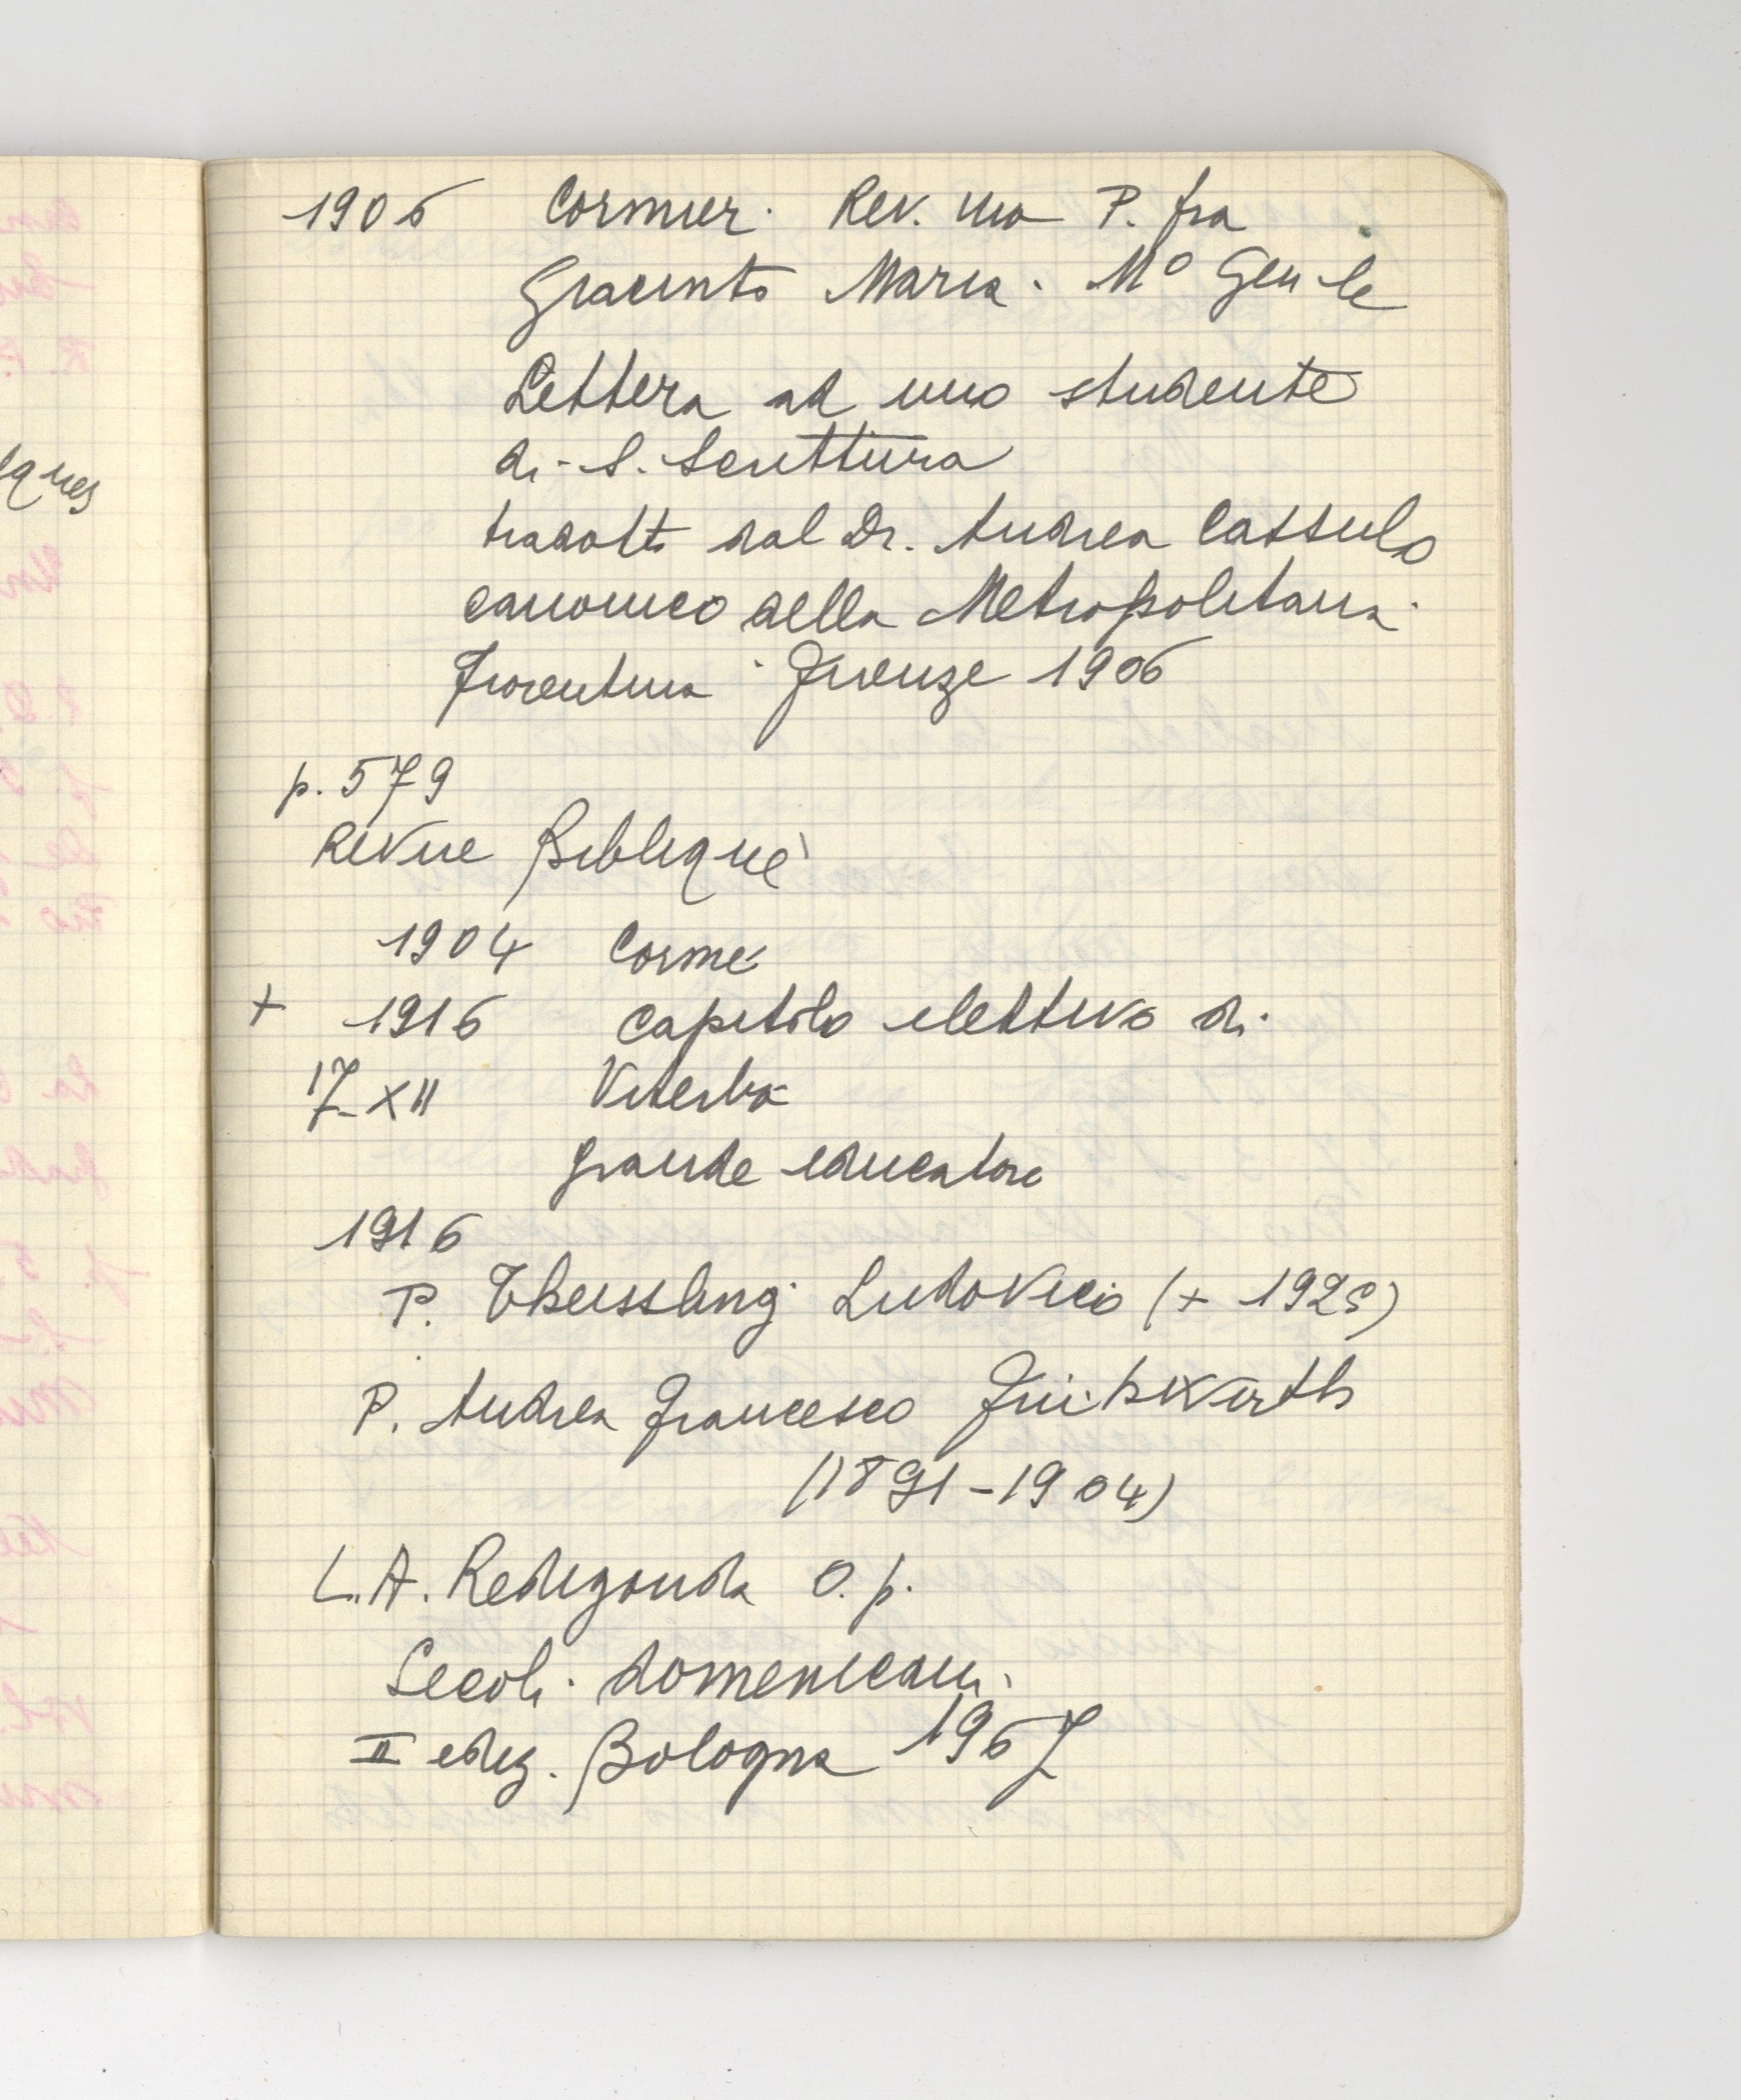 1906 Cormier. Rev. mo P. fra
Giacinto Maria. M° Gen le
Lettera ad uno studente
di S. Scrittura
tradotto dal Dr. Andrea Cassulo
canonico della Metropolitana
Fiorentina. Firenze 1906
p. 579
Revue Biblique
1904 Corme
+ 1916 Capitolo elettivo di
17-XII Viterbo
grande educatore
1916
P. Theissling Ludovico (+ 1925)
P. Andrea Francesco Frühwirth
(1891-1904)
L.A. Redigonda O.p.
Secoli domenicani
II ediz. Bologna 1967